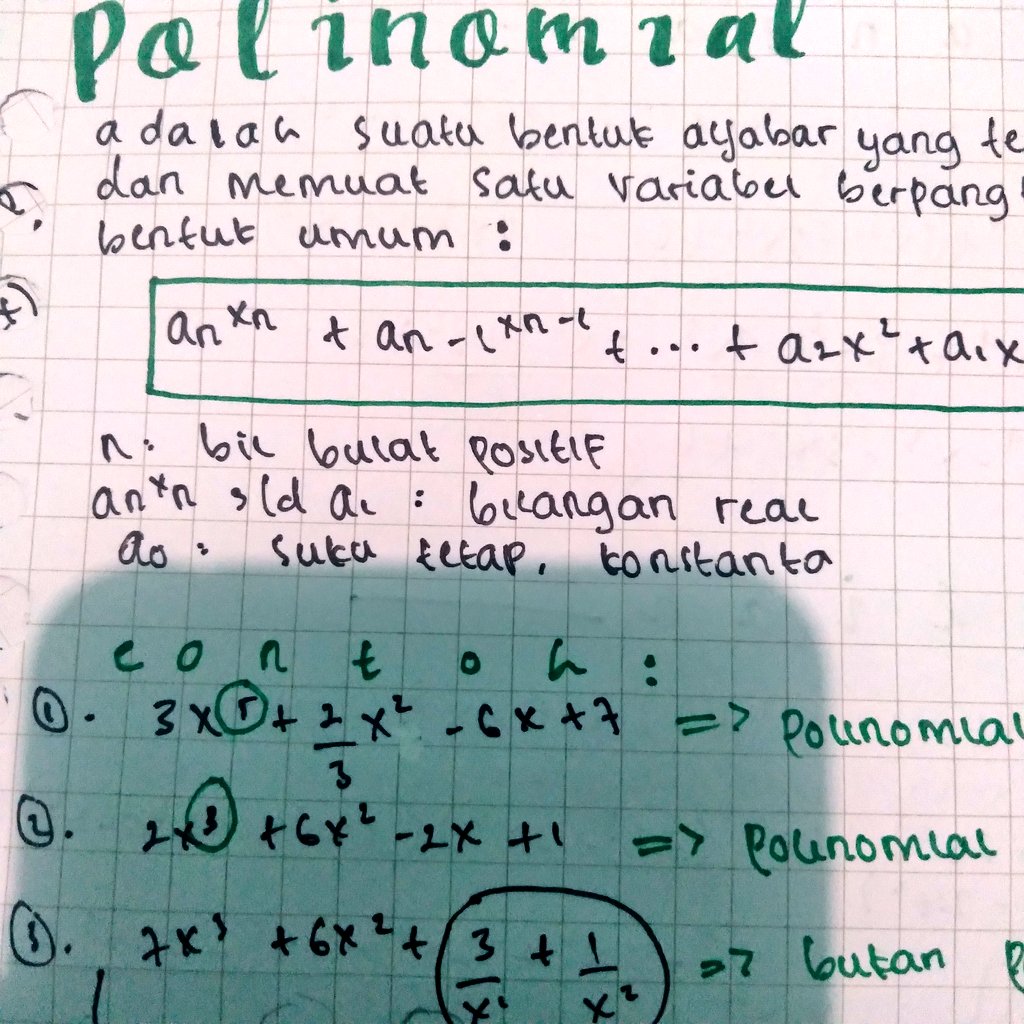 Polinomial
adalah suatu bentuk aljabar yang te
dan memuat satu variabel berpang
bentuk umum :
an^xn + an-1^xn-1 + ... + a2x² + a1x
n : bil bulat positif
an^xn s/d a1 : bilangan real
a0 : suku tetap, konstanta
contoh :
①. 3x⁵ + 2/3 x² - 6x + 7 => polinomial
②. 2x³ + 6x² - 2x + 1 => polinomial
③. 7x³ + 6x² + 3/x¹ + 1/x² => bukan p